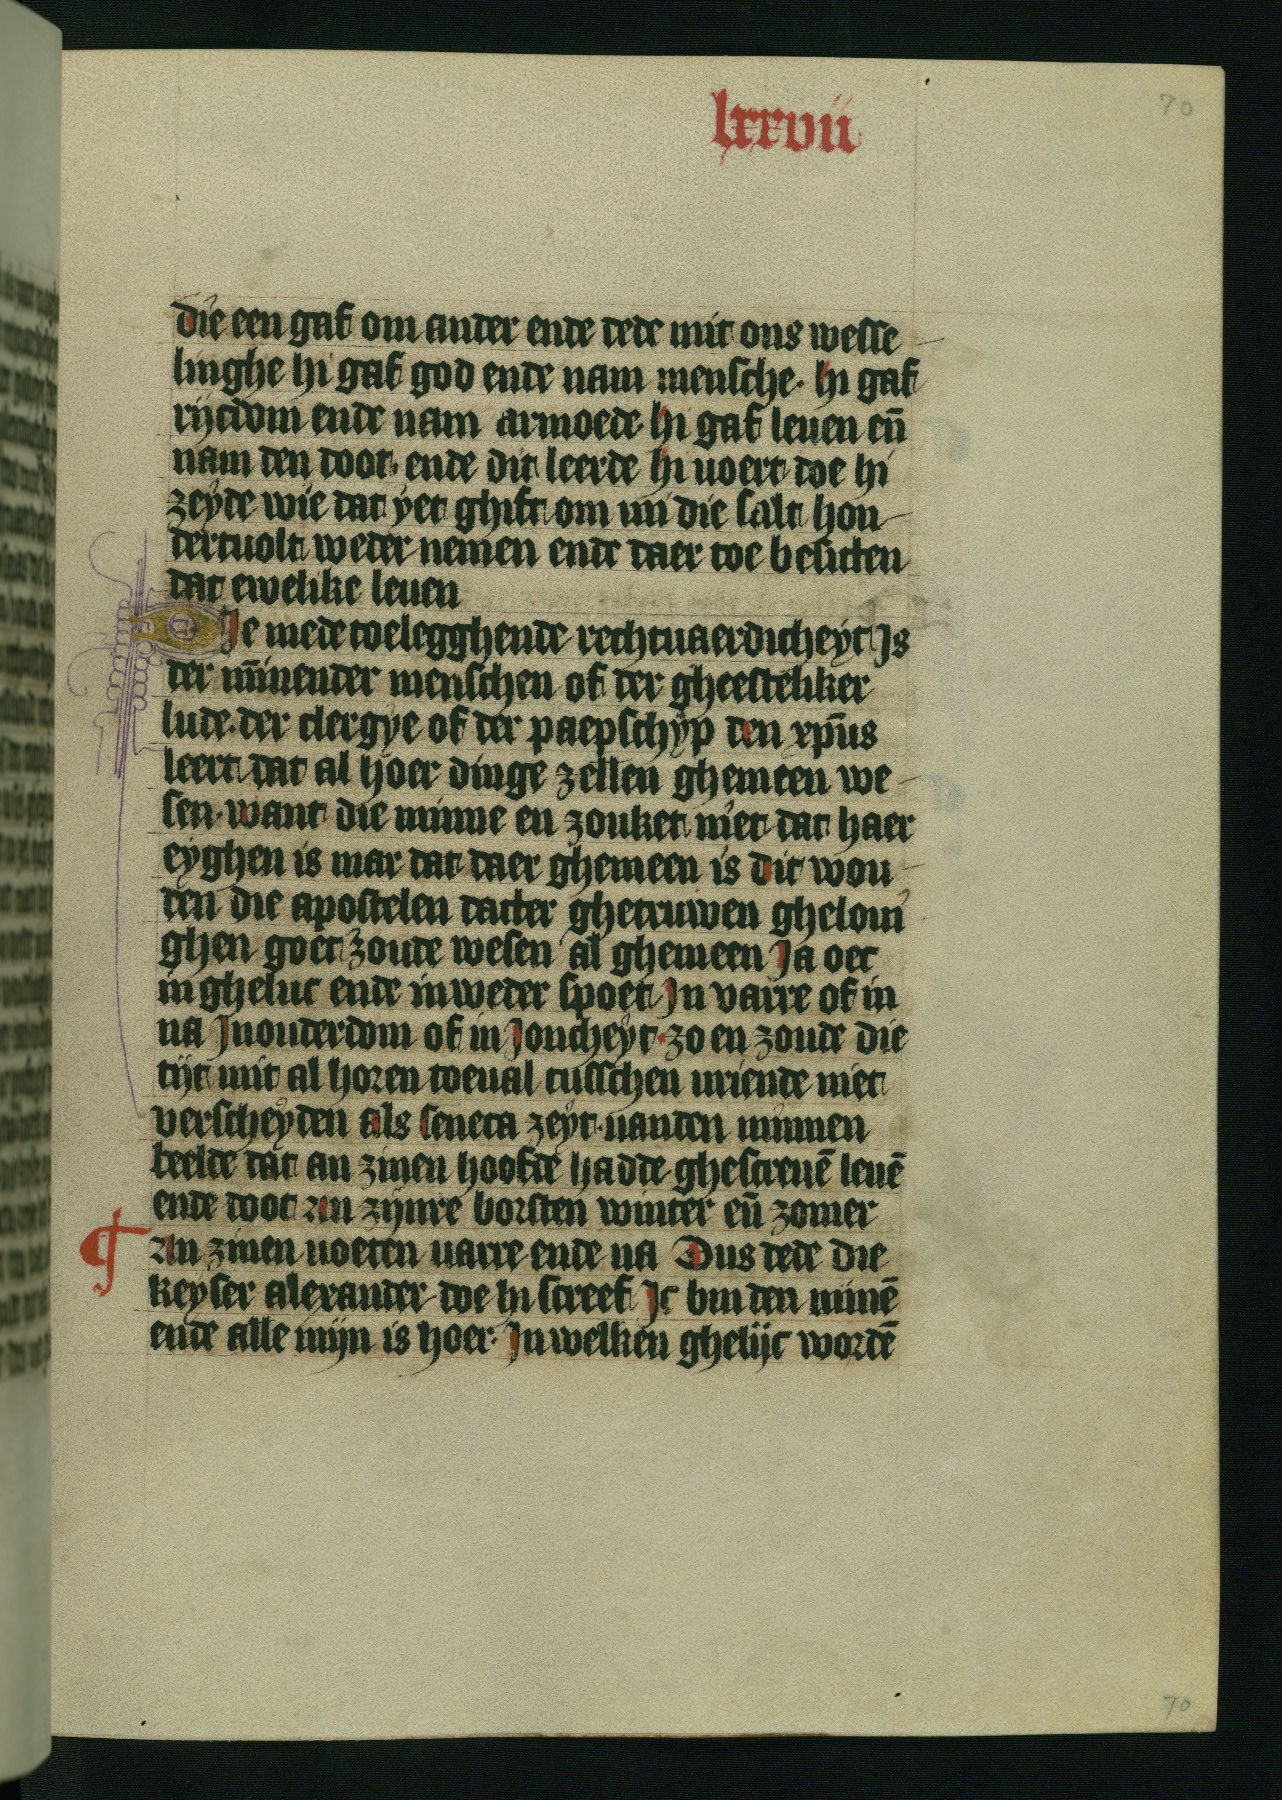 70
lxxvii
die een gaf om ander ende dede mit ons wesse
linghe hi gaf god ende nam mensche· hi gaf
rijcdom ende nam armoede· hi gaf leuen en̄
nam den doot· ende dit leerde hi voert doe hi
zeyde wie dat yet ghift om mi die salt hon
dertuolt weder nemen ende daer toe besitten
dat ewelike leuen
DIe mede toelegghende rechtuaerdicheyt Is
der mīnender menschen of der gheesteliker
lude· der clergye of der paepschyp den xpūs
leert dat al hoer dinge zellen ghemeen we
sen· want die minne en zouket niet dat haer
eyghen is mar dat daer ghemeen is dit wou
den die apostelen datter ghetruwen gheloui
ghen goet zoude wesen al ghemeen Ja oec
in gheluc ende in weder spoet In varre of in
na In ouderdom of in Joncheyt· zo en zoude die
tijt mit al horen toeual tusschen vriende niet
verscheyden als seneca zeyt· vanden minnen
beelde dat an zinen hoofde hadde ghescreuē leuē
ende doot An zijnre borsten winter en̄ zomer
¶ An zinen voeten varre ende na Dus dede die
keyser alexander doe hi screef Ic bin den minē
ende alle mijn is hoer· In welken ghelijc wordē
70